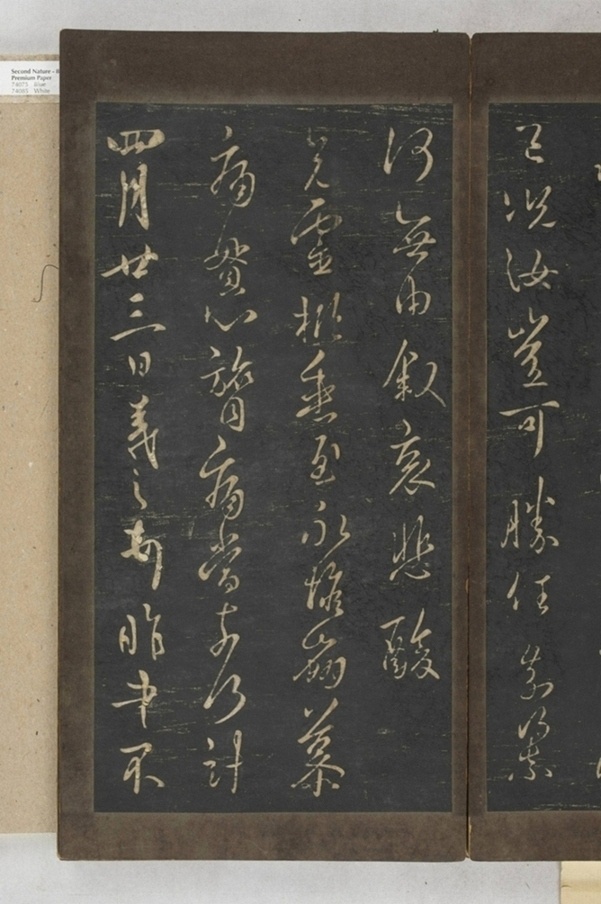 Second Nature – 
Premium Paper
74075 Blue
74085 White
已況汝豈可勝任奈何奈
何無由敘哀悲酸
兄靈柩垂至永惟崩慕
痛貫心膂痛當奈何計
四月廿三日羲之頓首昨書不